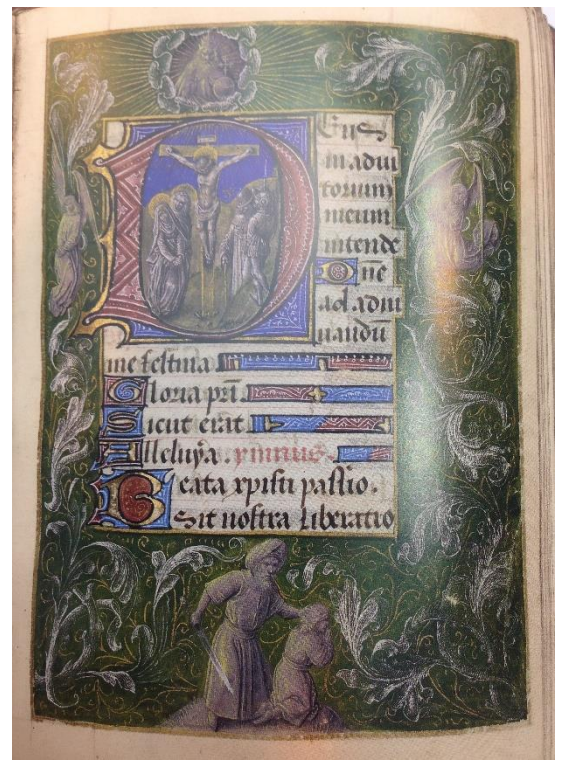 Deus
in adiu
torium
meum
intende
Dñe
ad adiu
uandu
me festina
Gloria pri
Sicut erat
Alleluya. ymnus.
Beata xpisti passio.
Sit nostra liberatio